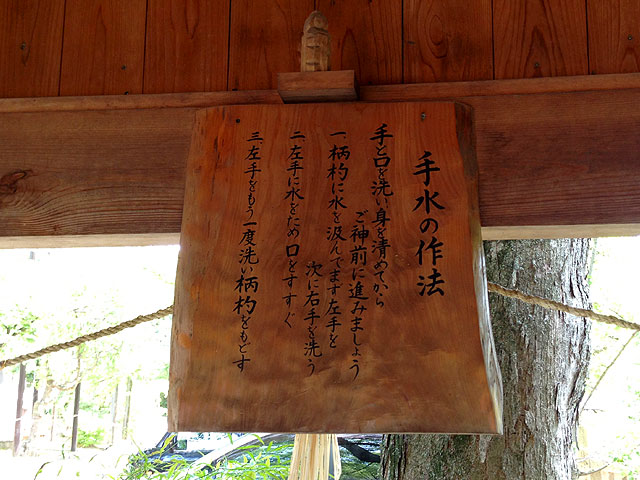 手水の作法
手と口を洗い身を清めてから
ご神前に進みましょう
一、柄杓に水を汲んでまず左手を
次に右手を洗う
二、左手に水をため口をすすぐ
三、左手をもう一度洗い柄杓をもどす